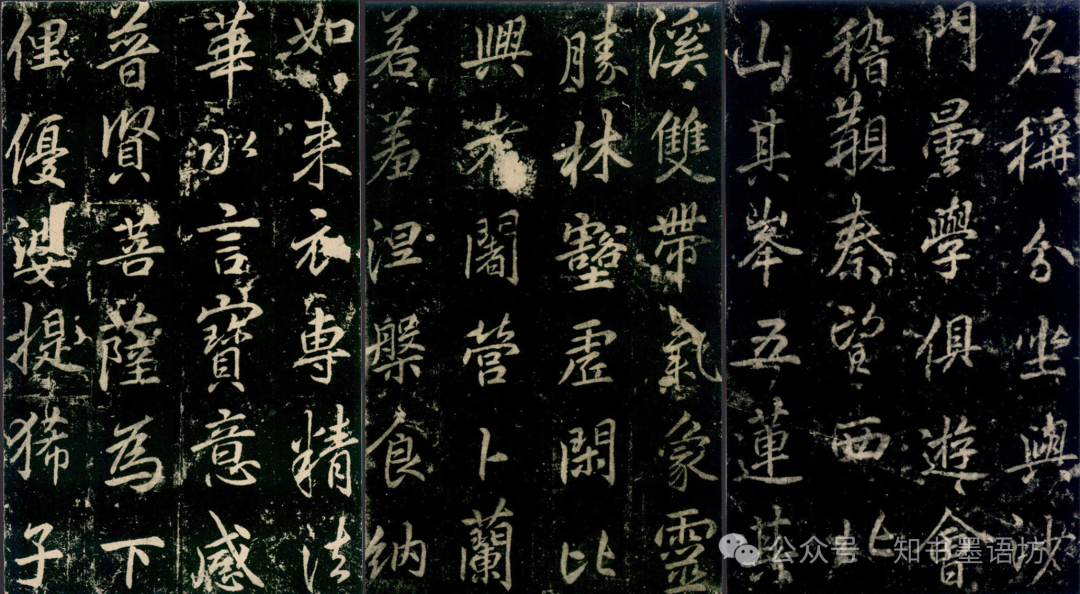 名稱分坐與沙
門曇學俱遊會
稽覯秦望西北
山其峯五蓮其
溪雙帶氣象靈
勝林壑虛閑比
興耆闍營卜蘭
若羞涅槃食納
如來衣專精法
華永言寶意感
普賢菩薩為下
俚優婆提狶子
公众号 · 知书墨语坊